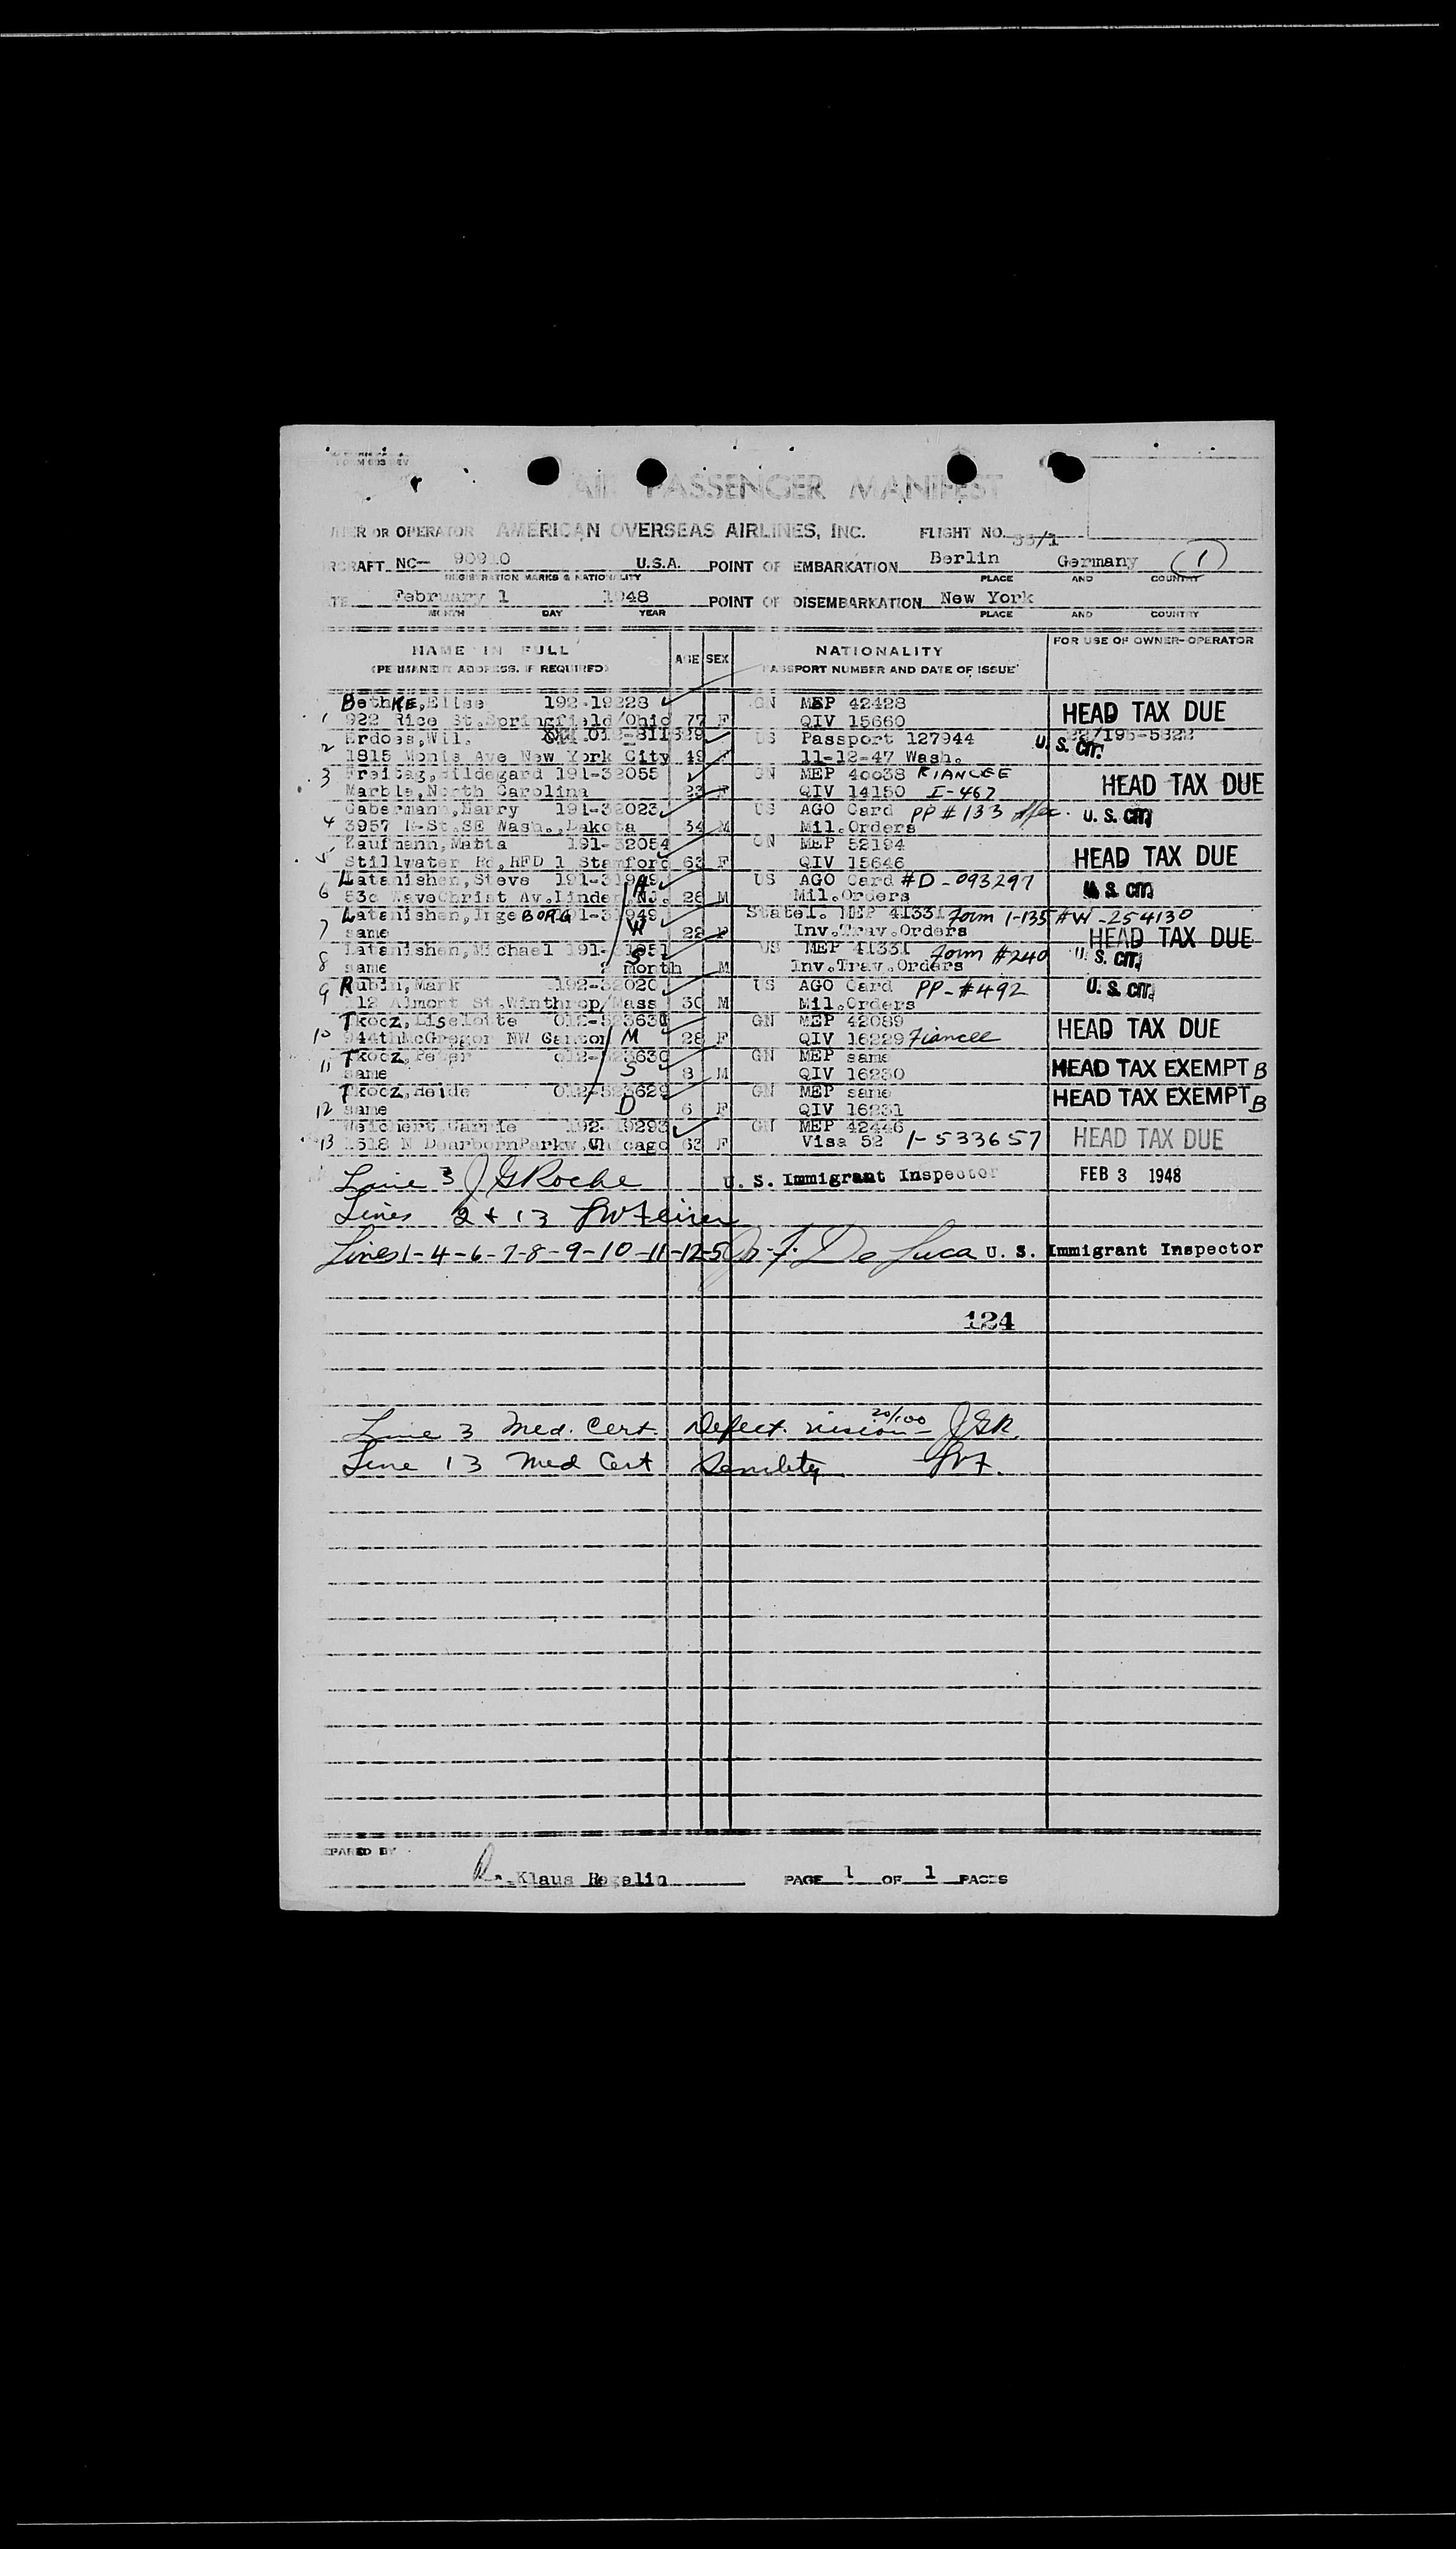 FORM 603 REV
AIR PASSENGER MANIFEST
OWNER OR OPERATOR AMERICAN OVERSEAS AIRLINES, INC. FLIGHT NO. 33/1
RCRAFT NC— 90910 U.S.A. POINT OF EMBARKATION Berlin Germany (1)
REGISTRATION MARKS & NATIONALITY PLACE AND COUNTRY
TE February 1 1948 POINT OF DISEMBARKATION New York
MONTH DAY YEAR PLACE AND COUNTRY
NAME IN FULL AGE SEX NATIONALITY FOR USE OF OWNER-OPERATOR
(PERMANENT ADDRESS, IF REQUIRED) PASSPORT NUMBER AND DATE OF ISSUE
BethKE, Elise 192-19228 GN MEP 42428
1 922 Rice St.Springfield/Ohio 77 F QIV 15660 HEAD TAX DUE
Erdoes,Wil. 012-811829 US Passport 127944 /195-5822
2 1815 Monts Ave New York City 49 11-12-47 Wash. U. S. CIT.
3 Freitag,Hildegard 191-32055 GN MEP 40038 FIANCEE
Marble,North Carolina 23 F QIV 14150 I-467 HEAD TAX DUE
Gabermann,Harry 191-32023 US AGO Card PP # 133
4 3957 N-St.SE Wash.,Dakota 34 M Mil.Orders U. S. CIT.
Kaufmann,Marta 191-32054 GN MEP 52194
5 Stillwater Rd,RFD 1 Stamford 63 F QIV 15646 HEAD TAX DUE
Latanishen,Steve 191-31949 US AGO Card #D-093297
6 530 WaveChrist Av.Linden,NJ. 26 M Mil.Orders U. S. CIT.
Latanishen,IngeBORG 191-31949 W Statel. MEP 41331 Form 1-135 #W-254130
7 same 22 F Inv.Trav.Orders HEAD TAX DUE
Latanishen,Michael 191-31951 S US MEP 41331 Form #240
8 same month M Inv.Trav.Orders U. S. CIT.
9 Rubin,Mark 192-32020 US AGO Card PP-#492
12 Almont St.Winthrop/Mass 30 M Mil.Orders U. S. CIT.
Tkocz,Liselotte 012-523630 GN MEP 42089
10 944thMcGregor NW Canton M 28 F QIV 16229 Fiancee HEAD TAX DUE
11 Tkocz,Peter 012-523630 GN MEP same
same S 8 M QIV 16230 HEAD TAX EXEMPT B
Tkocz,Heide 012-523629 GN MEP same
12 same D 6 F QIV 16231 HEAD TAX EXEMPT B
Weichert,Carrie 192-19293 GN MEP 42446
13 1518 N DearbornParkw.Chicago 63 F Visa 52 1-533657 HEAD TAX DUE
Line 3 J G Roche U. S. Immigrant Inspector FEB 3 1948
Lines 2 + 13
Lines 1-4-6-7-8-9-10-11-12-5 F. De Luca U. S. Immigrant Inspector
124
Line 3 Med. Cert. Defect. vision 20/100 JGR.
Line 13 Med Cert Senility
PARED BY
Klaus PAGE 1 OF 1 PAGES